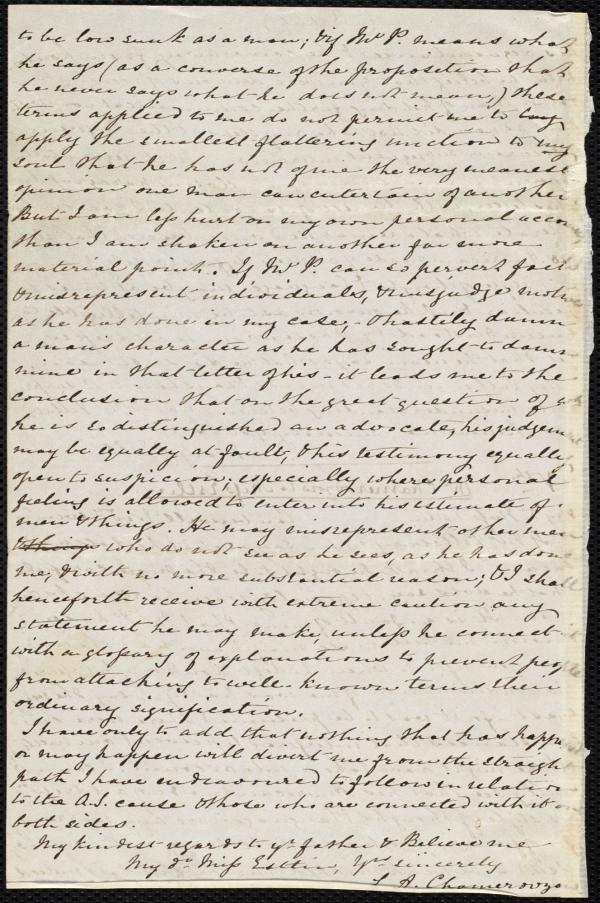 to be low sunk as a man; & if Mr. P. means what
he says (as a converse of the proposition that
he never says what he does not mean,) these
terms applied to me do not permit me to lay
apply the smallest flattering unction to my
soul that he has not of me the very meanest
opinion one man can entertain of another
But I am less hurt on my own personal accou
than I am shaken on another far more
material point. If Mr. P. can so pervert fact
& misrepresent individuals, & misjudge motive
as he has done in my case, - & hastily damn
a man's character as he has sought to damn
mine in that letter of his - it leads me to the
conclusion that on the great question of
he is so distinguished an advocate, his judgem
may be equally at fault, & his testimony equally
open to suspicion; especially where personal
feeling is allowed to enter into his estimate of
men & things. He may misrepresent other men
& things who do not see as he sees, as he has done
me, & with no more substantial reason; & I shall
henceforth receive with extreme caution any
statement he may make, unless he connect
with a glossary of explanations to prevent people
from attaching to well-known terms their
ordinary signification.
I have only to add that nothing that has happe
or may happen will divert me from the straight
path I have endeavoured to follow in relation
to the A.S. cause & those who are connected with it on
both sides.
My kindest regards to yr. father & Believe me
My dr. Miss Estlin, Yrs. sincerely
L. A. Chamerovzow